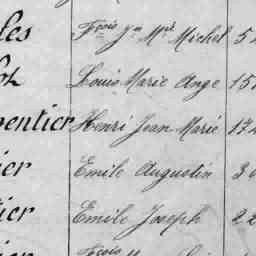 les Frois Jn Mie Michel 5
ot Louis Marie Ange 15
pentier Henri Jean Marie 174
ier Emile Augustin 30
tier Emile Joseph 22
ier Frois